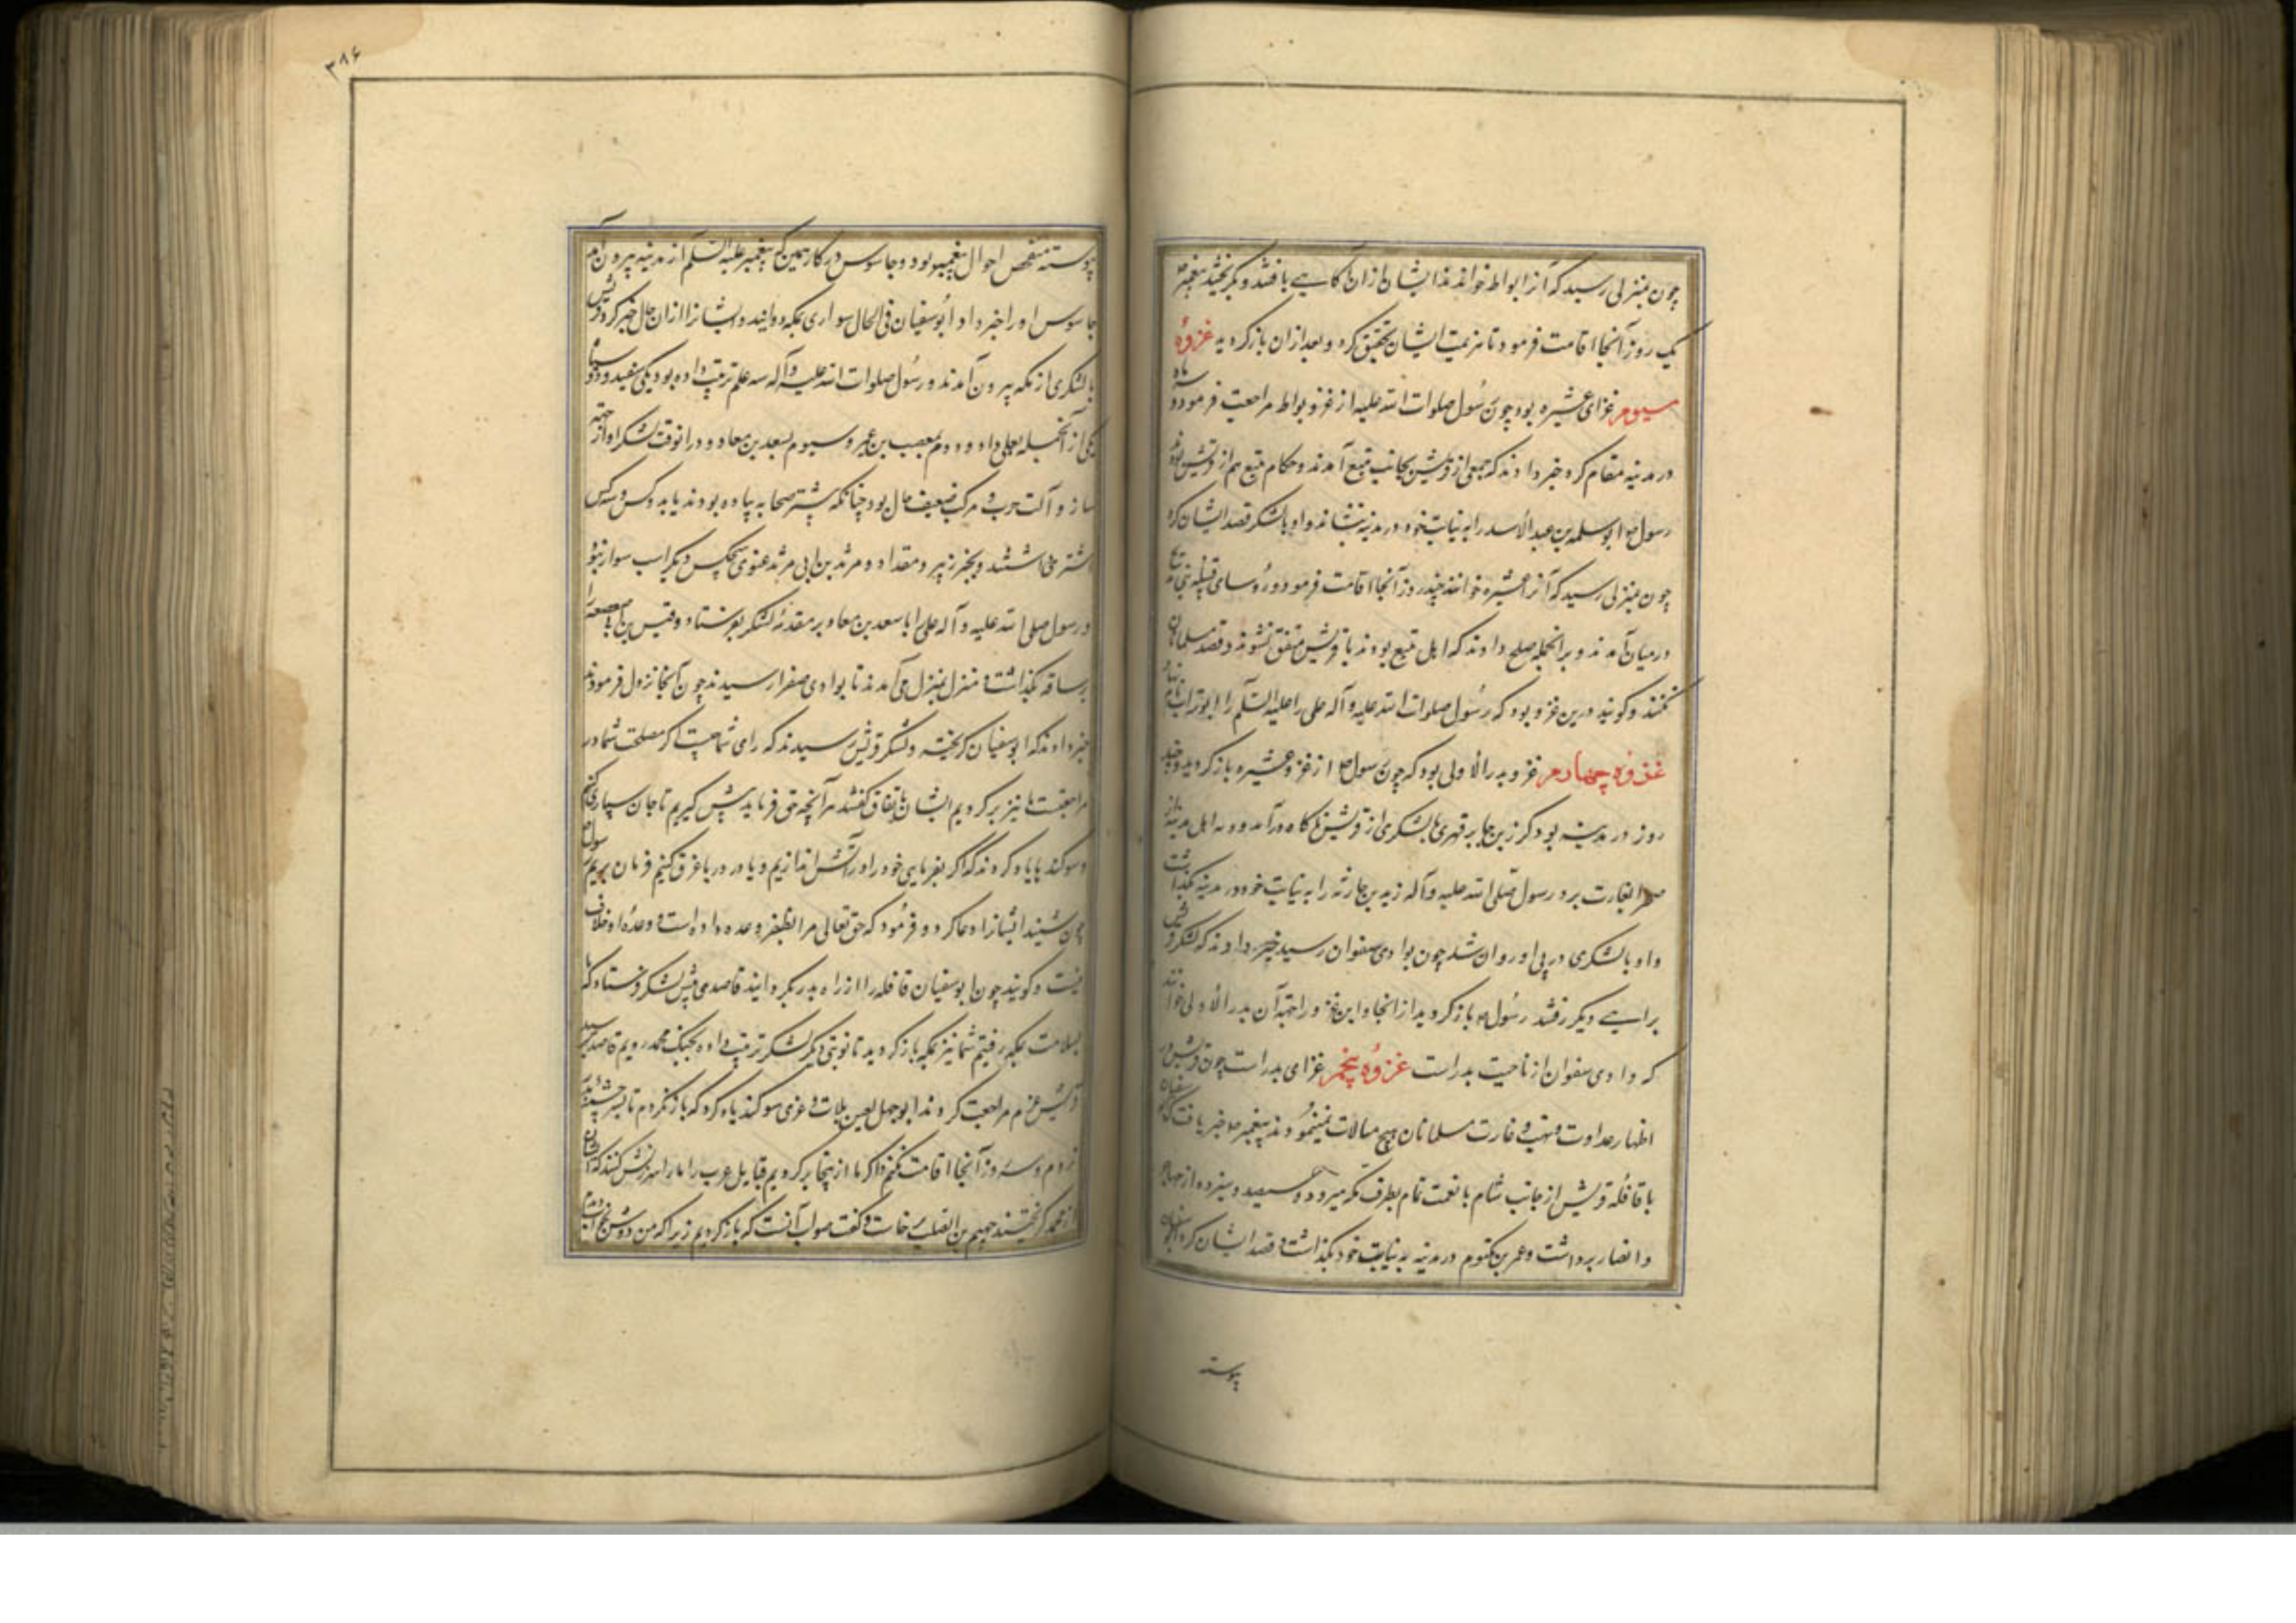 چون بمنزلی رسید که آنرا بواط خوانند ایشان ازان آگاهی یافتند و بگریختند پیغمبر
یک روز آنجا اقامت فرمود تا هزیمت ایشان تحقیق کرد و بعد ازان بازگردید غزوهٔ
سیوم غزای عشیره بود چون رسول صلوات الله علیه از غزو بواط مراجعت فرمود و سه ماه
در مدینه مقام کرد خبر دادند که جمعی از قریش بجانب ینبع آمدند و حکام ینبع هم از قریش بودند
رسول ص ابو سلمه بن عبد الأسد را به نیابت خود در مدینه بنشاند و او با لشکر قصد ایشان کرد
چون بمنزلی رسید که آنرا عشیره خوانند چند روز آنجا اقامت فرمود و رؤسای قبیله بنی
در میان آمدند و بر انجمله صلح دادند که اهل ینبع بودند با قریش متفق نشوند و قصد مسلمانان
نکنند و گویند درین غزو بود که رسول صلوات الله علیه و آله علی را علیه السلام را ابو تراب نام نهاد
غزوه چهارم غزو بدر الاولی بود که چون رسول ص از غزو عشیره بازگردید و چند
روز در مدینه بود کرز بن جابر فهری با لشکری از قریش ناگاه درآمد و رمه اهل مدینه
بغارت برد رسول صلی الله علیه و آله زید بن حارثه را به نیابت خود در مدینه بگذاشت
و او با لشکری در پی او روان شد چون بوادی سفوان رسید خبر دادند که لشکر قریش
براهی دیگر رفتند رسول ص بازگردید از انجا و این غزو را جهة آن بدر الاولی خوانند
که وادی سفوان از ناحیت بدر است غزوهٔ پنجم غزای بدر است چون قریش در
اظهار عداوت و نهب و غارت مسلمانان هیچ مبالات نمینمودند پیغمبر ص خبر یافت که ابو سفیان
با قافلهٔ قریش از جانب شام با نعمت تمام بطرف مکه میرود و سیصد و سیزده از مهاجر
و انصار برداشت و عمر بن مکتوم در مدینه به نیابت خود بگذاشت و قصد ایشان کرد ابو سفیان
پیوسته
۳۸۶
پیوسته متفحص احوال پیغمبر بود و جاسوس در کار همین که پیغمبر علیه السلم از مدینه بیرون آمد
جاسوس او را خبر داد ابو سفیان فی الحال سواری بمکه دوانید و ایشانرا ازان حال خبر کرد قریش
با لشکری از مکه بیرون آمدند و رسول صلوات الله علیه و آله سه علم ترتیب داده بود یکی سفید و دو سیاه
یکی از آنجمله بعلی داد و دوم بمصعب بن عمیر و سیوم بسعد بن معاذ و درانوقت لشکر او از جهة
ساز و آلت حرب و مرکب ضعیف حال بود چنانکه بیشتر صحابه پیاده بودند یا بدو کس و سه کس
اشتر میداشتند و بجز زبیر و مقداد و مرثد بن ابی مرثد غنوی هیچکس دیگر اسب سوار نبود
و رسول صلی الله علیه و آله علی را با سعد بن معاذ بر مقدمهٔ لشکر بفرستاد و قیس بن صعصعه را
بر ساقه بگذاشت و منزل بمنزل می آمدند تا بوادی صفرا رسیدند چون آنجا نزول فرمودند
خبر دادند که ابو سفیان گریخته و لشکر قریش رسیدند که رای شما چیست اگر مصلحت شما در
مراجعتست ما نیز برگردیم ایشان باتفاق گفتند هر آنچه حق فرماید پیش گیریم تا جان سپاری کنیم
و سوگندها یاد کردند که اگر بفرمایی خود را در آتش اندازیم و یا در دریا غرق کنیم فرمان بریم رسول
چون شنید ایشانرا دعا کرد و فرمود که حق تعالی مرا بظفر وعده داده است و وعدهٔ او خلاف
نیست و گویند چون ابو سفیان قافله را از راه بدر بگردانید قاصدی پیش لشکر فرستاد که ما
بسلامت بمکه رفتیم شما نیز بمکه بازگردید تا نوبتی دیگر لشکر ترتیب داده بجنگ محمد رویم قاصد
قریش عزم مراجعت کردند ابو جهل لعین بلات و عزی سوگند یاد کرد که باز نگردم تا بسر چشمهٔ بدر
نروم و سه روز آنجا اقامت نکنم و اگر ما ازینجا برگردیم قبایل عرب ما را سرزنش کنند که از
از محمد گریختند جهیم بن الصلت برخاست و گفت صواب آنست که بازگردیم زیرا که من دوش